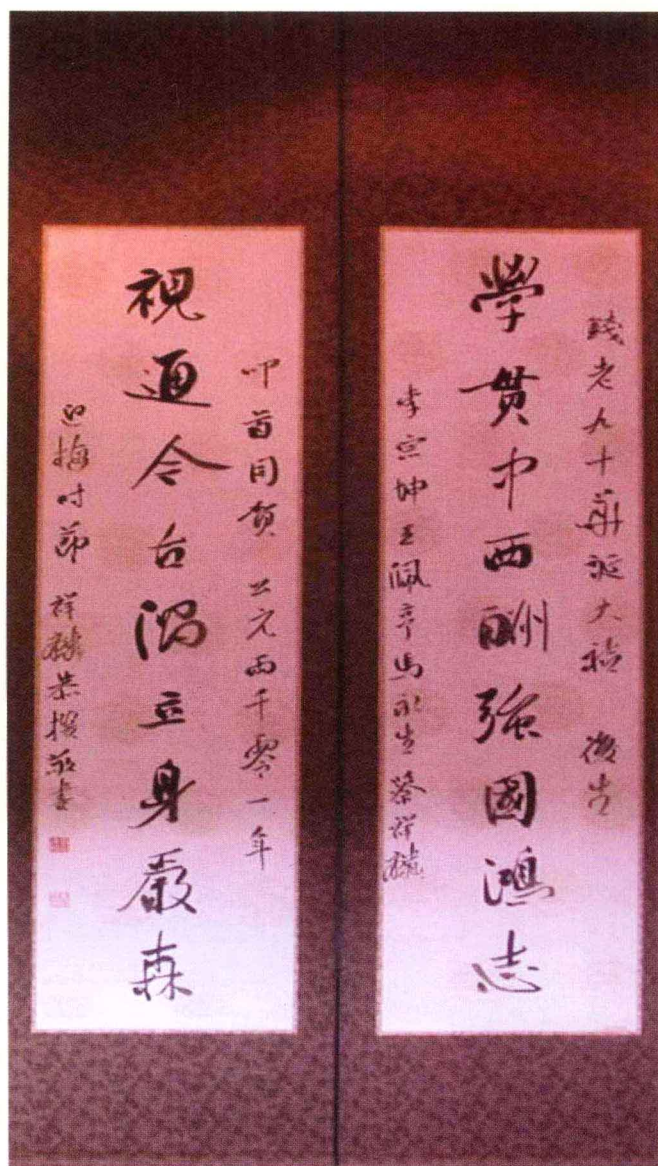 錢老九十華誕大禧 後学
學貫中西酬強國鴻志
李宗坤王佩亭馬永生蔡祥麟
叩首同賀 公元两千零一年
視通今古 立身嚴森
迎梅时節 祥麟恭撰敬书